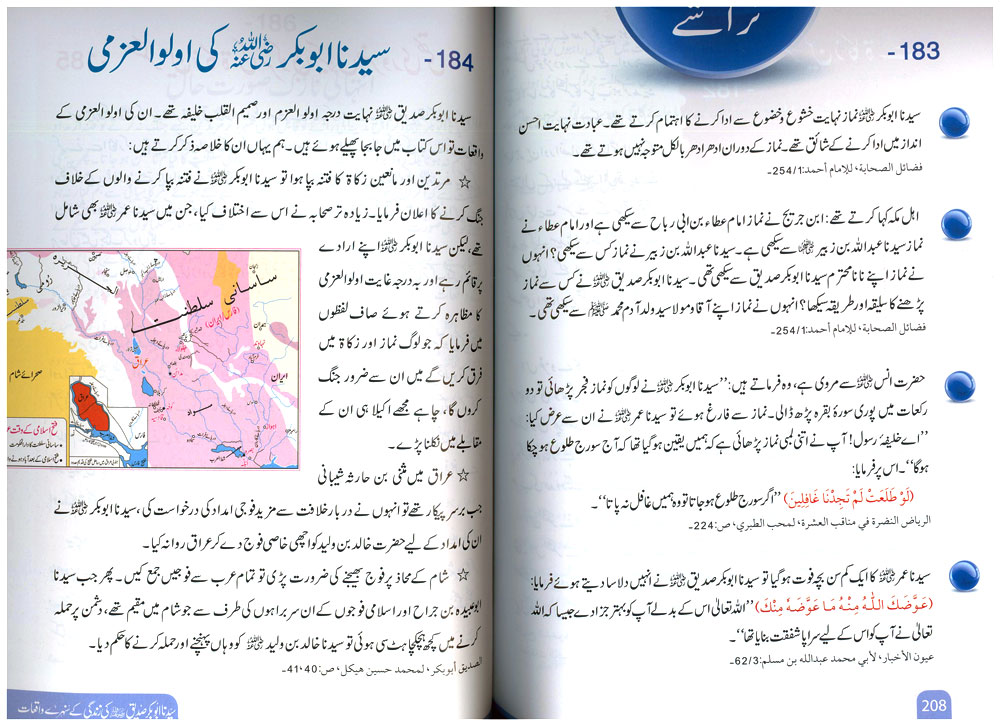 183-
تراشے
سیدنا ابوبکر رضی اللہ عنہ نماز نہایت خشوع و خضوع سے ادا کرنے کا اہتمام کرتے تھے۔ عبادت نہایت احسن
انداز میں ادا کرنے کے شائق تھے۔ نماز کے دوران ادھر ادھر بالکل متوجہ نہیں ہوتے تھے۔
فضائل الصحابة، للإمام أحمد:254/1-
اہل مکہ کہا کرتے تھے: ابن جریج نے نماز امام عطاء بن ابی رباح سے سیکھی ہے اور امام عطاء نے
نماز سیدنا عبداللہ بن زبیر رضی اللہ عنہ سے سیکھی ہے۔ سیدنا عبداللہ بن زبیر نے نماز کس سے سیکھی؟ انہوں
نے نماز اپنے نانا محترم سیدنا ابوبکر صدیق سے سیکھی تھی۔ سیدنا ابوبکر صدیق رضی اللہ عنہ نے کس سے نماز
پڑھنے کا سلیقہ اور طریقہ سیکھا؟ انہوں نے نماز اپنے آقا و مولا سید ولد آدم محمد ﷺ سے سیکھی تھی۔
فضائل الصحابة، للإمام أحمد:254/1-
حضرت انس رضی اللہ عنہ سے مروی ہے، وہ فرماتے ہیں: ’’سیدنا ابوبکر رضی اللہ عنہ نے لوگوں کو نماز فجر پڑھائی تو دو
رکعات میں پوری سورۂ بقرہ پڑھ ڈالی۔ نماز سے فارغ ہوئے تو سیدنا عمر رضی اللہ عنہ نے ان سے عرض کیا:
’’اے خلیفۂ رسول! آپ نے اتنی لمبی نماز پڑھائی ہے کہ ہمیں یقین ہو گیا تھا کہ آج سورج طلوع ہو چکا
ہوگا‘‘۔ اس پر فرمایا:
(لَوْ طَلَعَتْ لَمْ تَجِدْنَا غَافِلِينَ) ’’اگر سورج طلوع ہو جاتا تو وہ ہمیں غافل نہ پاتا‘‘۔
الرياض النضرة في مناقب العشرة، لمحب الطبري، ص:224-
سیدنا عمر رضی اللہ عنہ کا ایک کم سن بچہ فوت ہو گیا تو سیدنا ابوبکر صدیق رضی اللہ عنہ نے انہیں دلاسا دیتے ہوئے فرمایا:
(عَوَّضَكَ اللّٰهُ مِنْهُ مَا عَوَّضَهُ مِنْكَ) ’’اللہ تعالیٰ اس کے بدلے آپ کو بہتر جزا دے جیسا کہ اللہ
تعالیٰ نے آپ کو اس کے لیے سراپا شفقت بنایا تھا‘‘۔
عيون الأخبار، لأبي محمد عبدالله بن مسلم:62/3-
208
184- سیدنا ابوبکر رضی اللہ عنہ کی اولوالعزمی
سیدنا ابوبکر صدیق رضی اللہ عنہ نہایت درجہ اولوالعزم اور صمیم القلب خلیفہ تھے۔ ان کی اولوالعزمی کے
واقعات تو اس کتاب میں جابجا پھیلے ہوئے ہیں۔ ہم یہاں ان کا خلاصہ ذکر کرتے ہیں:
☆ مرتدین اور مانعین زکاۃ کا فتنہ بپا ہوا تو سیدنا ابوبکر رضی اللہ عنہ نے فتنہ بپا کرنے والوں کے خلاف
جنگ کرنے کا اعلان فرمایا۔ زیادہ تر صحابہ نے اس سے اختلاف کیا، جن میں سیدنا عمر رضی اللہ عنہ بھی شامل
تھے، لیکن سیدنا ابوبکر رضی اللہ عنہ اپنے ارادے
پر قائم رہے اور بہ درجہ غایت اولوالعزمی
کا مظاہرہ کرتے ہوئے صاف لفظوں
میں فرمایا کہ جو لوگ نماز اور زکاۃ میں
فرق کریں گے میں ان سے ضرور جنگ
کروں گا، چاہے مجھے اکیلا ہی ان کے
مقابلے میں نکلنا پڑے۔
☆ عراق میں مثنیٰ بن حارثہ شیبانی
جب برسر پیکار تھے تو انہوں نے دربار خلافت سے مزید فوجی امداد کی درخواست کی، سیدنا ابوبکر رضی اللہ عنہ نے
ان کی امداد کے لیے حضرت خالد بن ولید کو اچھی خاصی فوج دے کر عراق روانہ کیا۔
☆ شام کے محاذ پر فوج بھیجنے کی ضرورت پڑی تو تمام عرب سے فوجیں جمع کیں۔ پھر جب سیدنا
ابوعبیدہ بن جراح اور اسلامی فوجوں کے ان سربراہوں کی طرف سے جو شام میں مقیم تھے، دشمن پر حملہ
کرنے میں کچھ ہچکچاہٹ سی ہوئی تو سیدنا خالد بن ولید رضی اللہ عنہ کو وہاں پہنچنے اور حملہ کرنے کا حکم دیا۔
الصديق أبوبكر، لمحمد حسين هيكل، ص:41،40-
ساسانی سلطنت
(فارس/ایران)
عراق
ایران
صحرائے شام
عراق
فارس
سیدنا ابوبکر صدیق رضی اللہ عنہ کی زندگی کے سنہرے واقعات